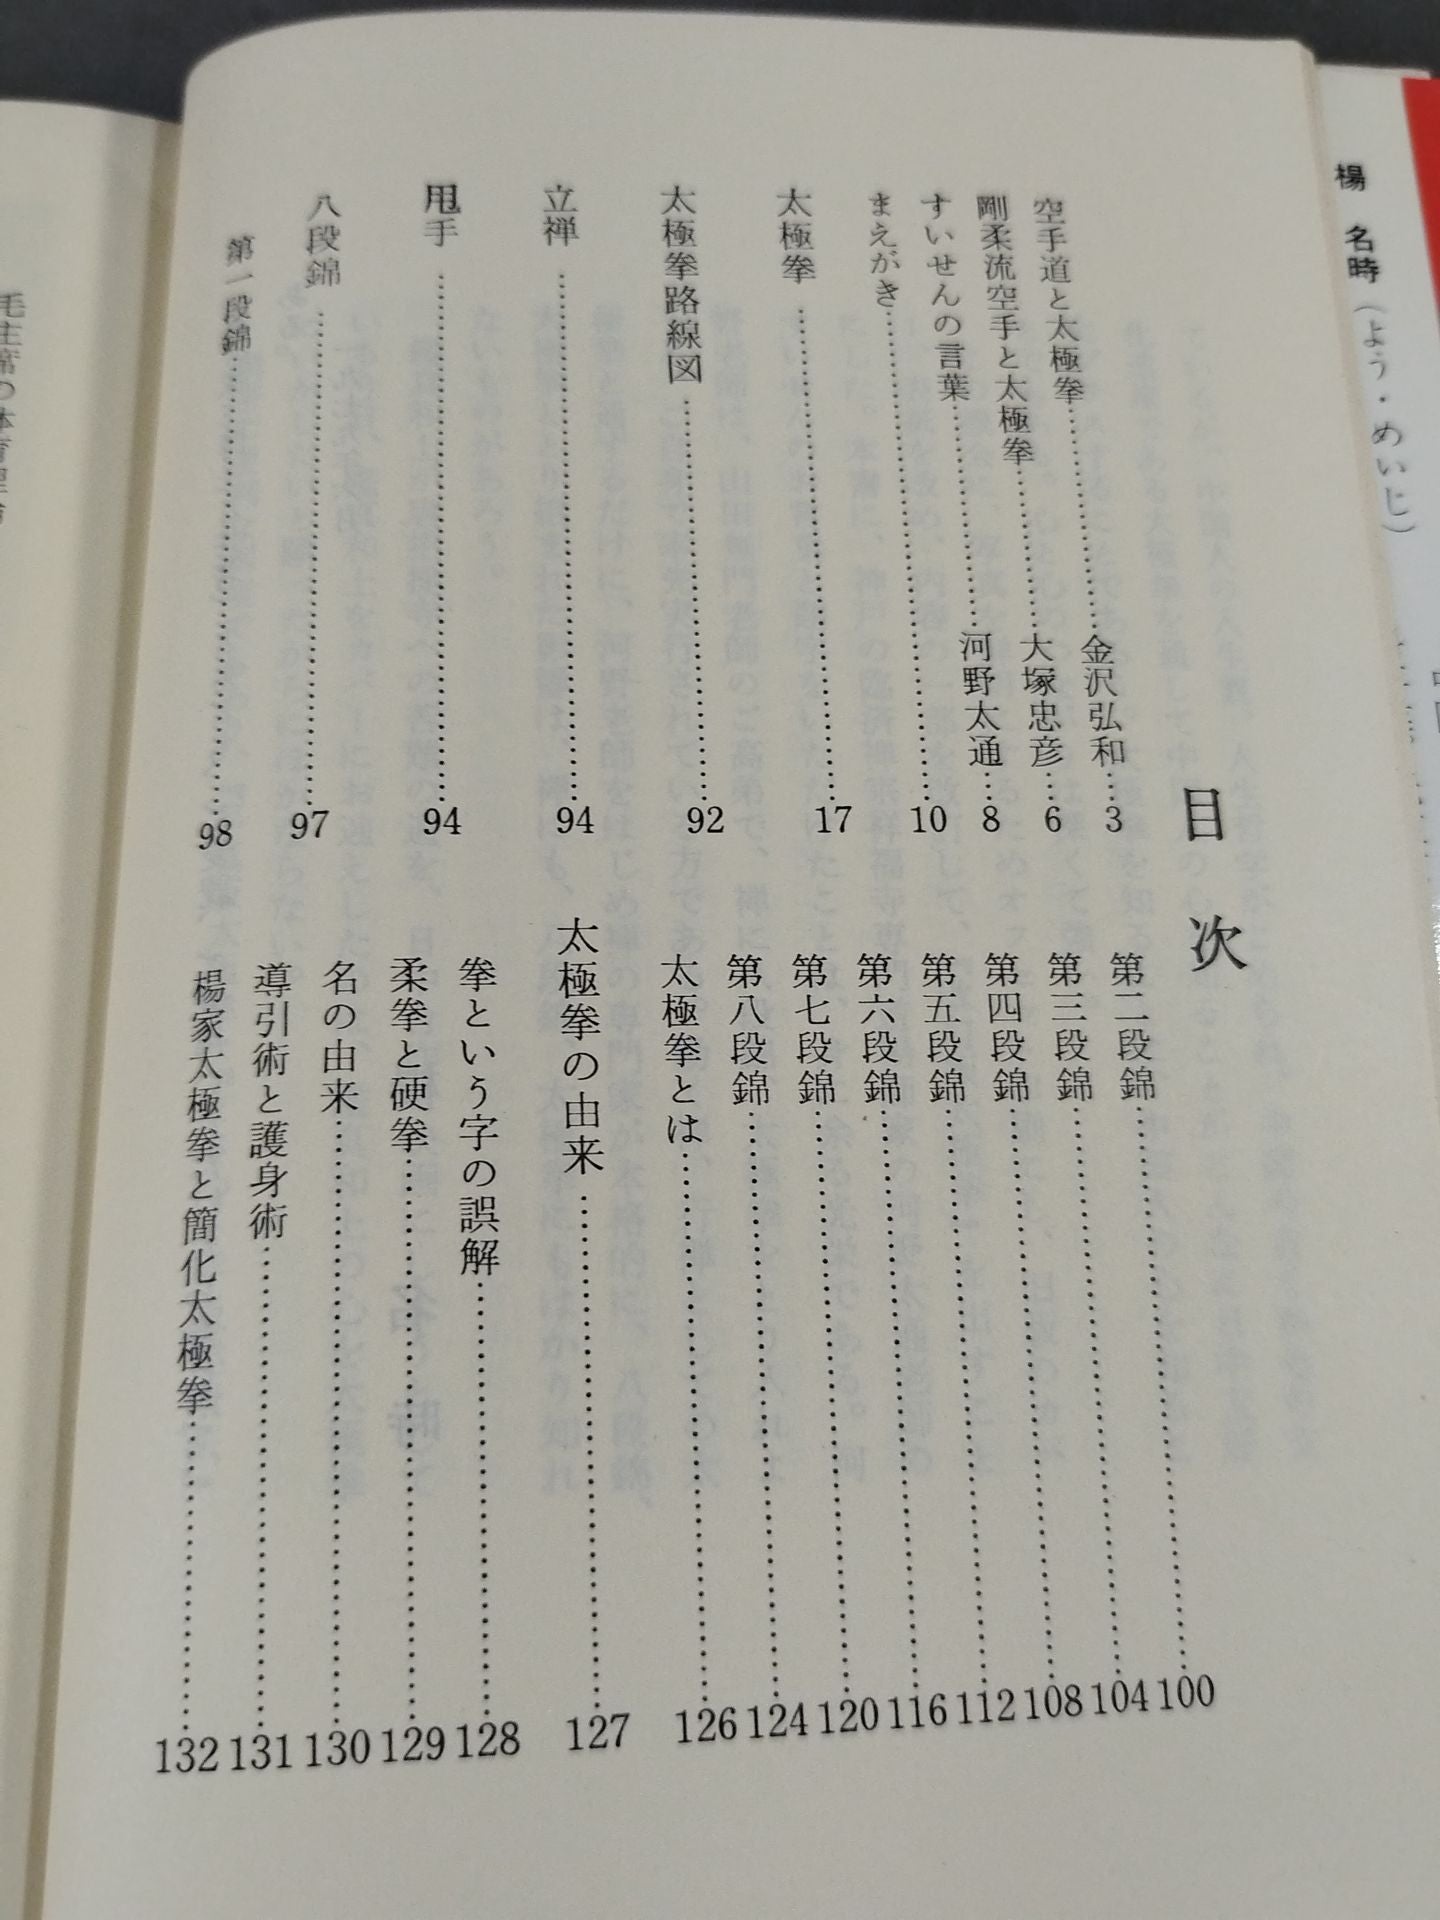 目次
空手道と太極拳……金沢弘和…3
剛柔流空手と太極拳……大塚忠彦…6
すいせんの言葉……河野太通…8
まえがき……10
太極拳……17
太極拳路線図……92
立禅……94
甩手……94
八段錦……97
第一段錦……98
第二段錦……100
第三段錦……104
第四段錦……108
第五段錦……112
第六段錦……116
第七段錦……120
第八段錦……124
太極拳とは……126
太極拳の由来……127
拳という字の誤解……128
柔拳と硬拳……129
名の由来……130
導引術と護身術……131
楊家太極拳と簡化太極拳……132
楊 名時（よう・めいじ）